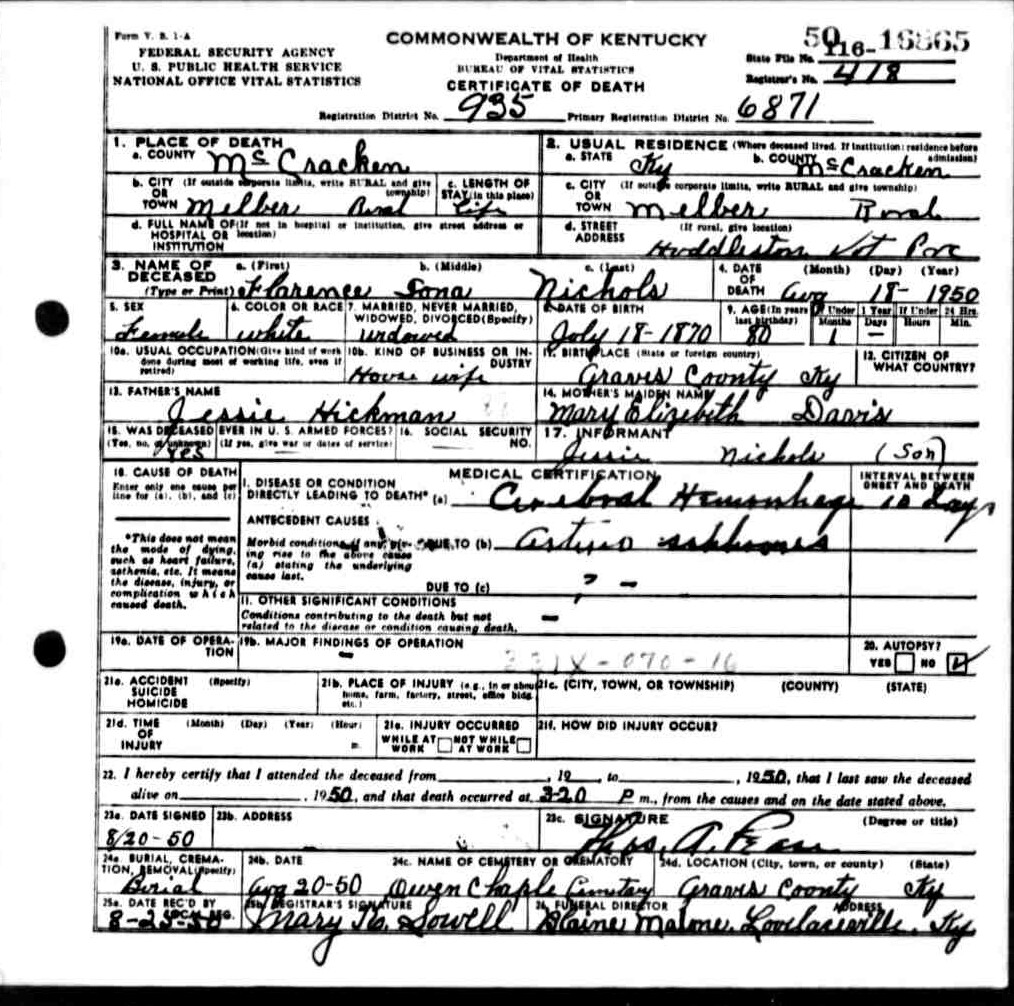 Form V. S. 1-A
FEDERAL SECURITY AGENCY
U. S. PUBLIC HEALTH SERVICE
NATIONAL OFFICE VITAL STATISTICS
COMMONWEALTH OF KENTUCKY
Department of Health
BUREAU OF VITAL STATISTICS
CERTIFICATE OF DEATH
State File No. 50 116-16865
Registrar's No. 418
Registration District No. 935 Primary Registration District No. 6871
1. PLACE OF DEATH
a. COUNTY McCracken
b. CITY (If outside corporate limits, write RURAL and give township)
OR
TOWN Melber Rural
c. LENGTH OF STAY (in this place) life
d. FULL NAME OF (If not in hospital or institution, give street address or location)
HOSPITAL OR
INSTITUTION
2. USUAL RESIDENCE (Where deceased lived. If institution: residence before admission)
a. STATE Ky b. COUNTY McCracken
c. CITY (If outside corporate limits, write RURAL and give township)
OR
TOWN Melber Rural
d. STREET (If rural, give location)
ADDRESS Huddleston Vot Prc
3. NAME OF DECEASED (Type or Print)
a. (First) b. (Middle) c. (Last)
Florence Nichols
4. DATE OF DEATH (Month) (Day) (Year)
Aug 18- 1950
5. SEX
Female
6. COLOR OR RACE
white
7. MARRIED, NEVER MARRIED, WIDOWED, DIVORCED (Specify)
widowed
8. DATE OF BIRTH
July 18-1870
9. AGE (In years last birthday) If Under 1 Year If Under 24 Hrs.
Months Days Hours Min.
80 1 —
10a. USUAL OCCUPATION (Give kind of work done during most of working life, even if retired)
10b. KIND OF BUSINESS OR INDUSTRY
House wife
11. BIRTHPLACE (State or foreign country)
Graves County Ky
12. CITIZEN OF WHAT COUNTRY?
13. FATHER'S NAME
Jessie Hickman
14. MOTHER'S MAIDEN NAME
Mary Elizebeth Davis
15. WAS DECEASED EVER IN U. S. ARMED FORCES?
(Yes, no, or unknown) (If yes, give war or dates of service)
Yes
16. SOCIAL SECURITY NO.
17. INFORMANT
Jessie Nichols (Son)
18. CAUSE OF DEATH
Enter only one cause per line for (a), (b), and (c)
*This does not mean the mode of dying, such as heart failure, asthenia, etc. It means the disease, injury, or complication which caused death.
MEDICAL CERTIFICATION
INTERVAL BETWEEN ONSET AND DEATH
I. DISEASE OR CONDITION
DIRECTLY LEADING TO DEATH* (a) Cerebral Hemorrhage 10 days
ANTECEDENT CAUSES
Morbid conditions if any, giving rise to the above cause (a) stating the underlying cause last.
DUE TO (b)
DUE TO (c) ? -
II. OTHER SIGNIFICANT CONDITIONS
Conditions contributing to the death but not related to the disease or condition causing death. —
19a. DATE OF OPERATION
19b. MAJOR FINDINGS OF OPERATION
—
331X-070-16
20. AUTOPSY?
YES NO
21a. ACCIDENT (Specify)
SUICIDE
HOMICIDE
21b. PLACE OF INJURY (e.g., in or about home, farm, factory, street, office bldg. etc.)
21c. (CITY, TOWN, OR TOWNSHIP) (COUNTY) (STATE)
21d. TIME OF INJURY (Month) (Day) (Year) (Hour) m.
21e. INJURY OCCURRED
WHILE AT WORK NOT WHILE AT WORK
21f. HOW DID INJURY OCCUR?
22. I hereby certify that I attended the deceased from , 19 , to , 1950, that I last saw the deceased
alive on , 1950, and that death occurred at 3-20 P m., from the causes and on the date stated above.
23a. DATE SIGNED
8/20-50
23b. ADDRESS
23c. SIGNATURE (Degree or title)
Thos. A. Pease
24a. BURIAL, CREMATION, REMOVAL (Specify)
Burial
24b. DATE
Aug 20-50
24c. NAME OF CEMETERY OR CREMATORY
Owen Chaple Cemetary
24d. LOCATION (City, town, or county) (State)
Graves County Ky
25a. DATE REC'D BY LOCAL REG.
8-25-50
25b. REGISTRAR'S SIGNATURE
Mary K. Sowell
26. FUNERAL DIRECTOR ADDRESS
Blaine Malone, Lovelaceville, Ky